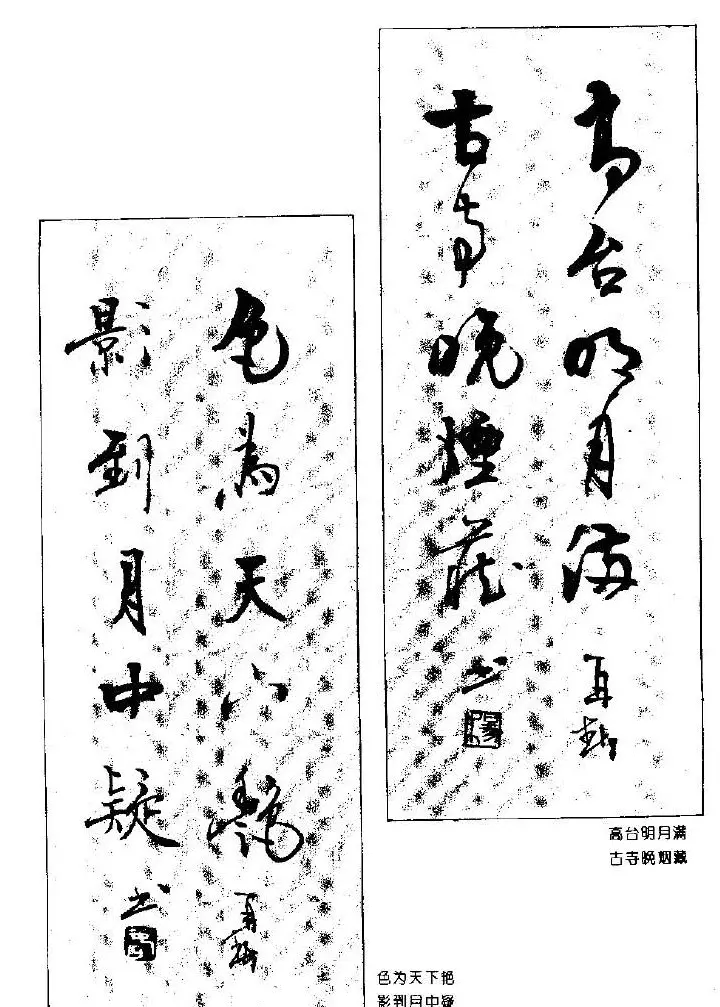 高台明月满
古寺晚煙藏 书
高台明月满
古寺晚烟藏
色為天下艷
影到月中疑 书
色为天下艳
影到月中疑